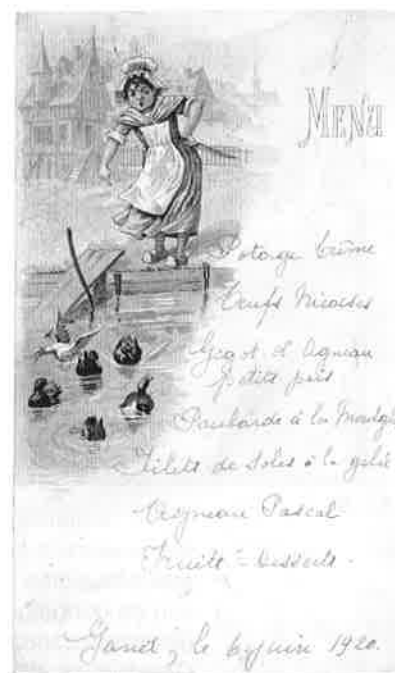 MENU
Potage Crême
Oeufs Nicoises
Gigot d'Agneau
petits pois
Poularde à la
Filets de Soles à la gelée
Agneau Pascal
Fruits - Desserts -
le juin 1920.